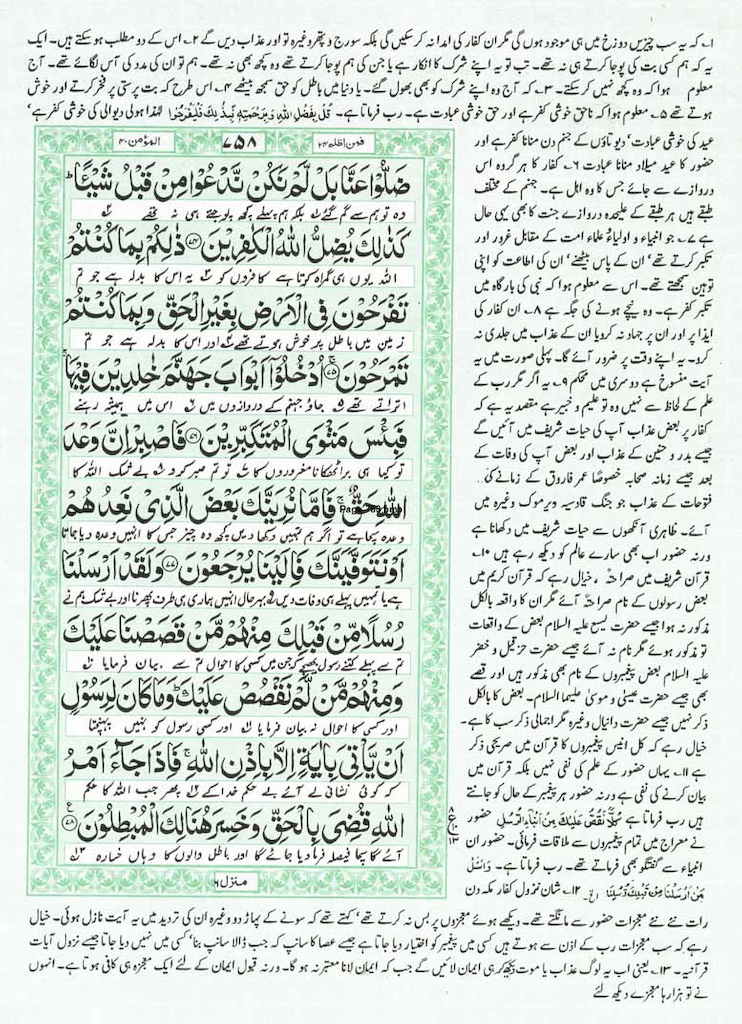 ۱۔ کہ یہ سب چیزیں دوزخ میں ہی موجود ہوں گی مگر ان کفار کی امداد نہ کر سکیں گی بلکہ سورج و پتھر وغیرہ تو اور عذاب دیں گے ۲۔ اس کے دو مطلب ہو سکتے ہیں۔ ایک
یہ کہ ہم کسی بت کی پوجا کرتے ہی نہ تھے۔ تب تو یہ اپنے شرک کا انکار ہے یا جن کی ہم پوجا کرتے تھے وہ کچھ بھی نہ تھے۔ ہم تو ان کی مدد کی آس لگائے تھے۔ آج
معلوم ہوا کہ وہ کچھ نہیں کر سکتے۔ ۳۔ کہ آج وہ اپنے شرک کو بھی بھول گئے۔ یا دنیا میں باطل کو حق سمجھ بیٹھے ۴۔ اس طرح کہ بت پرستی پر فخر کرتے اور خوش
ہوتے تھے ۵۔ معلوم ہوا کہ ناحق خوشی کفر ہے اور حق خوشی عبادت ہے۔ رب فرماتا ہے۔ قُلْ بِفَضْلِ اللّٰهِ وَبِرَحْمَتِهٖ فَبِذٰلِكَ فَلْيَفْرَحُوْا لہٰذا ہولی دیوالی کی خوشی کفر ہے'
المؤمن ۴۰
۷۵۸
فمن اظلم ۲۴
ضَلُّوْا عَنَّا بَلْ لَّمْ نَكُنْ نَّدْعُوْا مِنْ قَبْلُ شَيْـًٔا ؕ
وہ تو ہم سے گم گئے بلکہ ہم پہلے کچھ پوجتے ہی نہ تھے
كَذٰلِكَ يُضِلُّ اللّٰهُ الْكٰفِرِيْنَ ﴿۷۴﴾ ذٰلِكُمْ بِمَا كُنْتُمْ
اللہ یوں ہی گمراہ کرتا ہے کافروں کو یہ اس کا بدلہ ہے جو تم
تَفْرَحُوْنَ فِي الْاَرْضِ بِغَيْرِ الْحَقِّ وَبِمَا كُنْتُمْ
زمین میں باطل پر خوش ہوتے تھے اور اس کا بدلہ ہے جو تم
تَمْرَحُوْنَ ﴿۷۵﴾ اُدْخُلُوْٓا اَبْوَابَ جَهَنَّمَ خٰلِدِيْنَ فِيْهَا ۚ
اتراتے تھے جاؤ جہنم کے دروازوں میں اس میں ہمیشہ رہنے
فَبِئْسَ مَثْوَى الْمُتَكَبِّرِيْنَ ﴿۷۶﴾ فَاصْبِرْ اِنَّ وَعْدَ
تو کیا ہی برا ٹھکانا مغروروں کا تو تم صبر کرو بے شک اللہ کا
اللّٰهِ حَقٌّ ۚ فَاِمَّا نُرِيَنَّكَ بَعْضَ الَّذِيْ نَعِدُهُمْ
وعدہ سچا ہے تو اگر ہم تمہیں دکھا دیں کچھ وہ چیز جس کا انہیں وعدہ دیا جاتا
اَوْ نَتَوَفَّيَنَّكَ فَاِلَيْنَا يُرْجَعُوْنَ ﴿۷۷﴾ وَلَقَدْ اَرْسَلْنَا
ہے یا تمہیں پہلے ہی وفات دیں بہر حال انہیں ہماری ہی طرف پھرنا اور بے شک ہم نے
رُسُلًا مِّنْ قَبْلِكَ مِنْهُمْ مَّنْ قَصَصْنَا عَلَيْكَ
تم سے پہلے کتنے رسول بھیجے کہ جن میں کسی کا احوال تم سے بیان فرمایا
وَمِنْهُمْ مَّنْ لَّمْ نَقْصُصْ عَلَيْكَ ؕ وَمَا كَانَ لِرَسُوْلٍ
اور کسی کا احوال نہ بیان فرمایا اور کسی رسول کو نہیں پہنچتا
اَنْ يَّاْتِيَ بِاٰيَةٍ اِلَّا بِاِذْنِ اللّٰهِ ۚ فَاِذَا جَآءَ اَمْرُ
کہ کوئی نشانی لے آئے بے حکم خدا کے پھر جب اللہ کا حکم
اللّٰهِ قُضِيَ بِالْحَقِّ وَخَسِرَ هُنَالِكَ الْمُبْطِلُوْنَ ﴿۷۸﴾
آئے گا سچا فیصلہ فرما دیا جائے گا اور باطل والوں کا وہاں خسارہ
منزل ۶
عید کی خوشی عبادت' دیوتاؤں کے جنم دن منانا کفر ہے اور
حضور کا عید میلاد منانا عبادت ۶۔ کفار کا ہر گروہ اس
دروازے سے جائے جس کا وہ اہل ہے۔ جہنم کے مختلف
طبقے ہیں ہر طبقے کے علیحدہ دروازے جنت کا بھی یہی حال
ہے ۷۔ جو انبیاء و اولیاء و علماء امت کے مقابل غرور اور
تکبر کرتے تھے' ان کے پاس بیٹھنے' ان کی اطاعت کو اپنی
توہین سمجھتے تھے۔ اس سے معلوم ہوا کہ نبی کی بارگاہ میں
تکبر کفر ہے۔ وہ نیچے ہونے کی جگہ ہے ۸۔ ان کفار کی
ایذا پر اور ان پر جہاد نہ کرو یا ان کے عذاب میں جلدی نہ
کرو۔ یہ اپنے وقت پر ضرور آئے گا۔ پہلی صورت میں یہ
آیت منسوخ ہے دوسری میں محکم ۹۔ یہ اگر مگر رب کے
علم کے لحاظ سے نہیں وہ تو علیم و خبیر ہے مقصد یہ ہے کہ
کفار پر بعض عذاب آپ کی حیات شریف میں آئیں گے
جیسے بدر و حنین کے عذاب اور بعض آپ کی وفات کے
بعد جیسے زمانہ صحابہ خصوصا عمر فاروق کے زمانے کی
فتوحات کے عذاب جو جنگ قادسیہ و یرموک وغیرہ میں
آئے۔ ظاہری آنکھوں سے حیات شریف میں دکھانا ہے
ورنہ حضور اب بھی سارے عالم کو دیکھ رہے ہیں ۱۰۔
قرآن شریف میں صراحتہ ، خیال رہے کہ قرآن کریم میں
بعض رسولوں کے نام صراحتہ آئے مگر ان کا واقعہ بالکل
مذکور نہ ہوا جیسے حضرت یسع علیہ السلام بعض کے واقعات
تو مذکور ہوئے مگر نام نہ آئے جیسے حضرت حزقیل و خضر
علیہ السلام بعض پیغمبروں کے نام بھی مذکور ہیں اور قصے
بھی جیسے حضرت عیسیٰ و موسیٰ علیہما السلام۔ بعض کا بالکل
ذکر نہیں جیسے حضرت دانیال وغیرہ مگر اجمالی ذکر سب کا ہے۔
خیال رہے کہ کل انیس پیغمبروں کا قرآن میں صریحی ذکر
ہے ۱۱۔ یہاں حضور کے علم کی نفی نہیں بلکہ قرآن میں
بیان کرنے کی نفی ہے ورنہ حضور ہر پیغمبر کے حال کو جانتے
ہیں رب فرماتا ہے كُلًّا نَّقُصُّ عَلَيْكَ مِنْ اَنْبَآءِ الرُّسُلِ حضور
نے معراج میں تمام پیغمبروں سے ملاقات فرمائی۔ حضور ان
انبیاء سے گفتگو بھی فرماتے تھے۔ رب فرماتا ہے۔ وَاسْئَلْ
مَنْ اَرْسَلْنَا مِنْ قَبْلِكَ مِنْ رُّسُلِنَا الخ ۱۲۔ شان نزول کفار مکہ دن
رات نئے نئے معجزات حضور سے مانگتے تھے۔ دیکھے ہوئے معجزوں پر بس نہ کرتے تھے' کہتے تھے کہ سونے کے پہاڑ دو وغیرہ ان کی تردید میں یہ آیت نازل ہوئی۔ خیال
رہے کہ سب معجزات رب کے اذن سے ہوتے ہیں کسی میں پیغمبر کو اختیار دیا جاتا ہے جیسے عصا کا سانپ کہ جب ڈالا سانپ بنا' کسی میں نہیں دیا جاتا جیسے نزول آیات
قرآنیہ۔ ۱۳۔ یعنی اب یہ لوگ عذاب یا موت دیکھ کر ہی ایمان لائیں گے جب کہ ایمان لانا معتبر نہ ہو گا۔ ورنہ قبول ایمان کے لئے ایک معجزہ ہی کافی ہوتا ہے۔ انہوں
نے تو ہزارہا معجزے دیکھ لئے